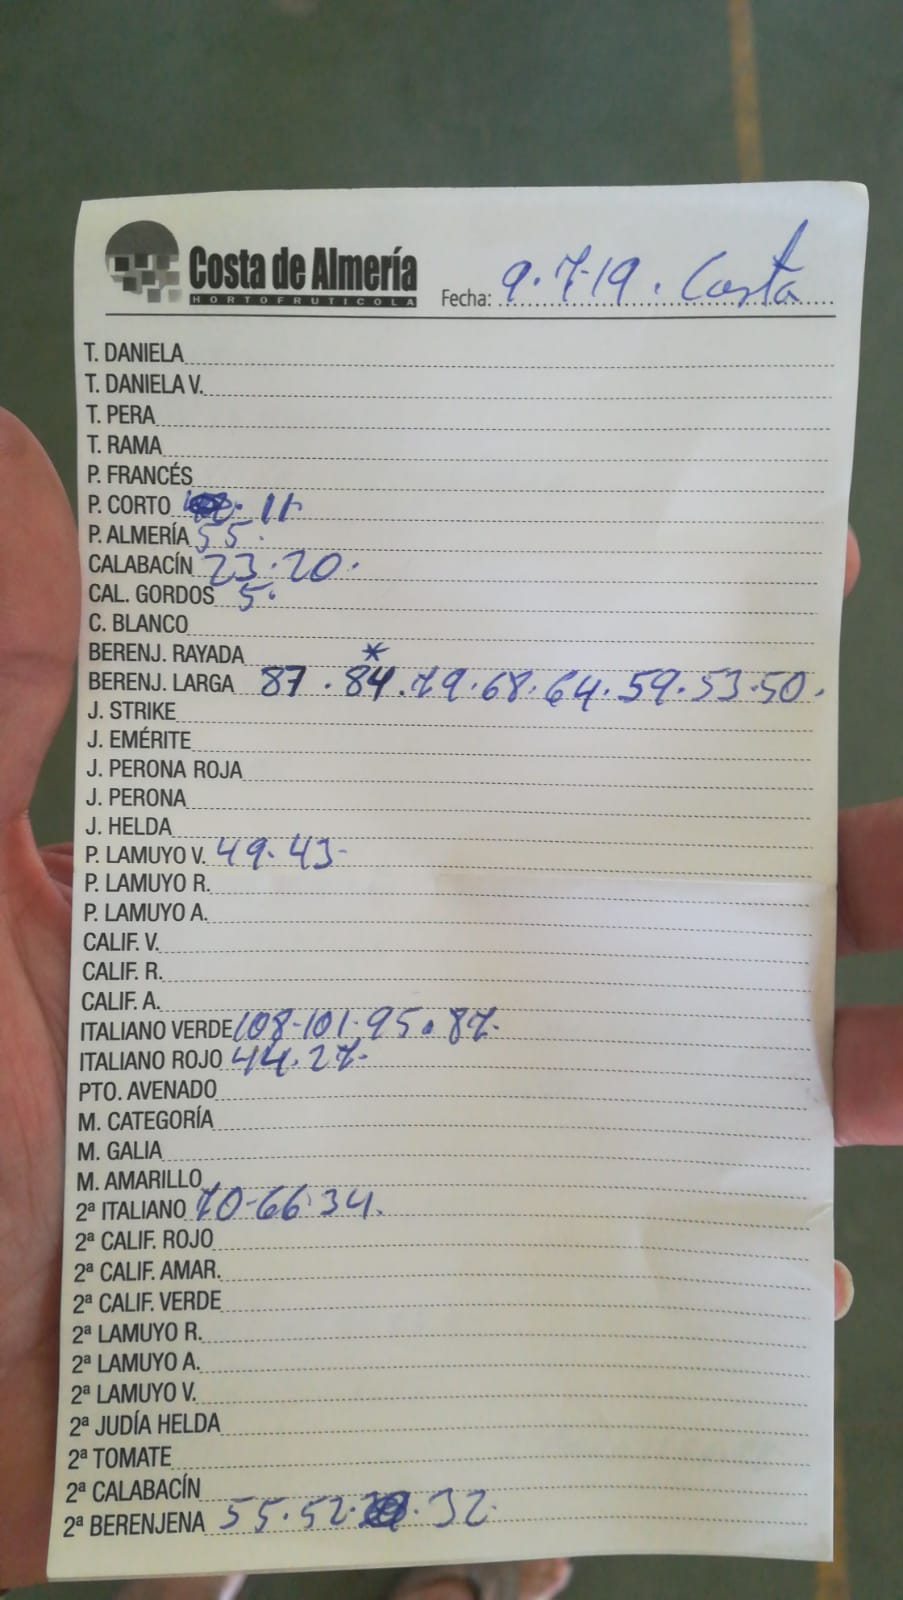 Costa de Almería
HORTOFRUTICOLA
Fecha: 9.7.19. Costa
T. DANIELA
T. DANIELA V.
T. PERA
T. RAMA
P. FRANCÉS
P. CORTO . 11
P. ALMERÍA 55.
CALABACÍN 23.20.
CAL. GORDOS 5.
C. BLANCO
BERENJ. RAYADA *
BERENJ. LARGA 87.84.79.68.64.59.53.50.
J. STRIKE
J. EMÉRITE
J. PERONA ROJA
J. PERONA
J. HELDA
P. LAMUYO V. 49.43-
P. LAMUYO R.
P. LAMUYO A.
CALIF. V.
CALIF. R.
CALIF. A.
ITALIANO VERDE 108-101-95.87.
ITALIANO ROJO 44.27-
PTO. AVENADO
M. CATEGORÍA
M. GALIA
M. AMARILLO
2ª ITALIANO 70-66.34.
2ª CALIF. ROJO
2ª CALIF. AMAR.
2ª CALIF. VERDE
2ª LAMUYO R.
2ª LAMUYO A.
2ª LAMUYO V.
2ª JUDÍA HELDA
2ª TOMATE
2ª CALABACÍN
2ª BERENJENA 55.52. .32.